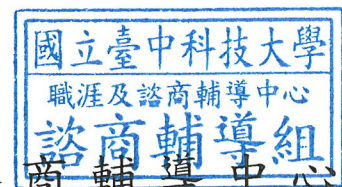 國立臺中科技大學
職涯及諮商輔導中心
諮商輔導組
商輔導中心